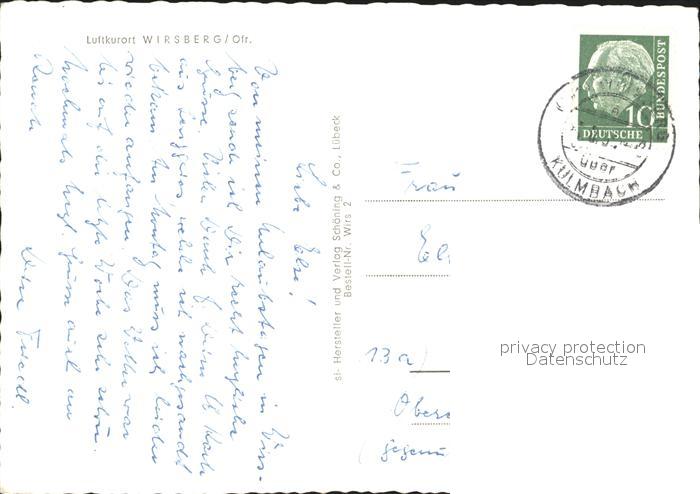 Luftkurort WIRSBERG/Ofr.
Liebe Else!
Von meinen Urlaubstagen in Wirs-
berg sende ich Dir recht herzliche
Grüsse. Vielen Dank f. Deine lb Karte
aus welche ich nachgesandt
bekam. Am Montag muss ich leider
wieder anfangen. Das Wetter war
bis auf die letzte Woche sehr schön.
Nochmals herzl. Grüsse auch an
Deine Friedl.
si- Hersteller und Verlag Schöning & Co., Lübeck
Bestell-Nr. Wirs 2
10
DEUTSCHE
BUNDESPOST
über
KULMBACH
Frau
El
13a)
Obers
(gegenü
privacy protection
Datenschutz